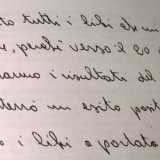 tutti i libri
, perché verso il 20 d
anno i risultati del
terrò un esito posi
i libri a portata